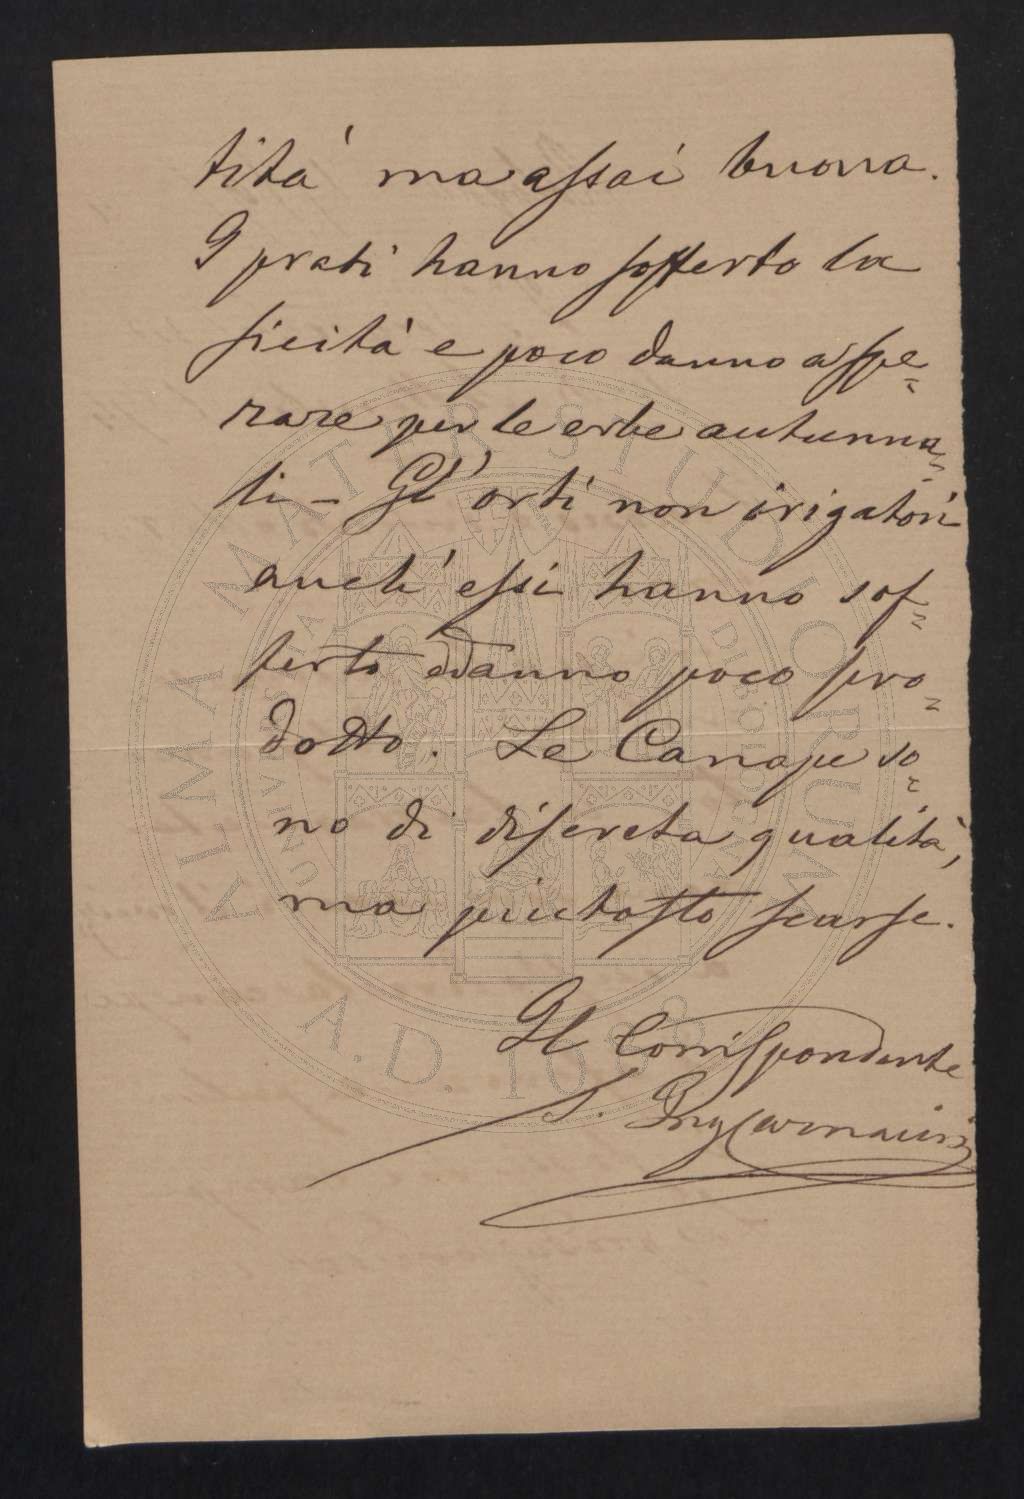 tità ma assai buona.
I prati hanno sofferto la
sicità e poco danno a spe=
rare per le erbe autunna=
li – Gl' orti non irigatori
anch' essi hanno sof=
ferto e danno poco pro=
dotto. Le Canape so=
no di discreta qualità,
ma piuttosto scarse.
Il Corrispondente
ALMA MATER STUDIORUM
A.D. 1088